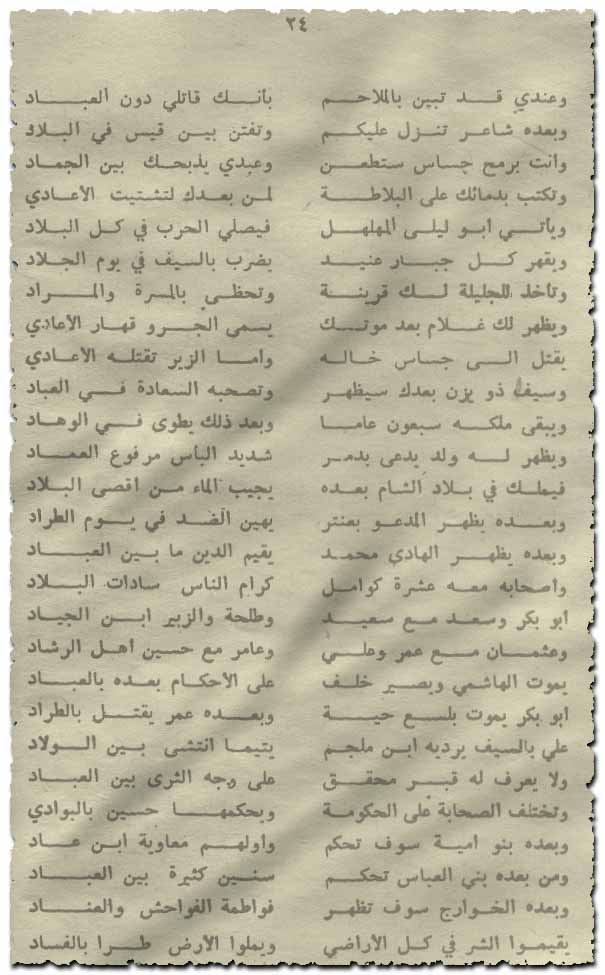 ٢٤
وعندي قد تبين بالملاحم بأنك قاتلي دون العباد
وبعده شاعر تنزل عليكم وتفتن بين قيس في البلاد
وانت برمح جساس ستطعن وعبدي يذبحك بين الجماد
وتكتب بدمائك على البلاطة لمن بعدك لتشتيت الأعادي
ويأتي ابو ليلى المهلهل فيصلي الحرب في كل البلاد
ويقهر كل جبار عنيد يضرب بالسيف في يوم الجلاد
وتأخذ الجليلة لك قرينة وتحظى بالمسرة والمراد
ويظهر لك غلام بعد موتك يسمى الجرو قهار الأعادي
يقتل الى جساس خاله وأما الزير تقتله الأعادي
وسيف ذو يزن بعدك سيظهر وتصحبه السعادة في العباد
ويبقى ملكه سبعون عاما وبعد ذلك يطوى في الوهاد
ويظهر له ولد يدعى بدمر شديد البأس مرفوع العماد
فيملك في بلاد الشام بعده يجيب الماء من أقصى البلاد
وبعده يظهر المدعو بعنتر يهين الضد في يوم الطراد
وبعده يظهر الهادي محمد يقيم الدين ما بين العباد
وأصحابه معه عشرة كوامل كرام الناس سادات البلاد
أبو بكر وسعد مع سعيد وطلحة والزبير ابن الجياد
وعثمان مع عمر وعلي وعامر مع حسين أهل الرشاد
يموت الهاشمي ويصير خلف على الأحكام بعده بالعباد
ابو بكر يموت بلسع حية وبعده عمر يقتل بالطراد
علي بالسيف يرديه ابن ملجم يتيما انتشى بين الولاد
ولا يعرف له قبر محقق على وجه الثرى بين العباد
وتختلف الصحابة على الحكومة ويحكمها حسين بالبوادي
وبعده بنو أمية سوف تحكم وأولهم معاوية ابن عاد
ومن بعده بني العباس تحكم سنين كثيرة بين العباد
وبعده الخوارج سوف تظهر فواطمة الفواحش والعناد
يقيموا الشر في كل الأراضي ويملوا الأرض طرا بالفساد